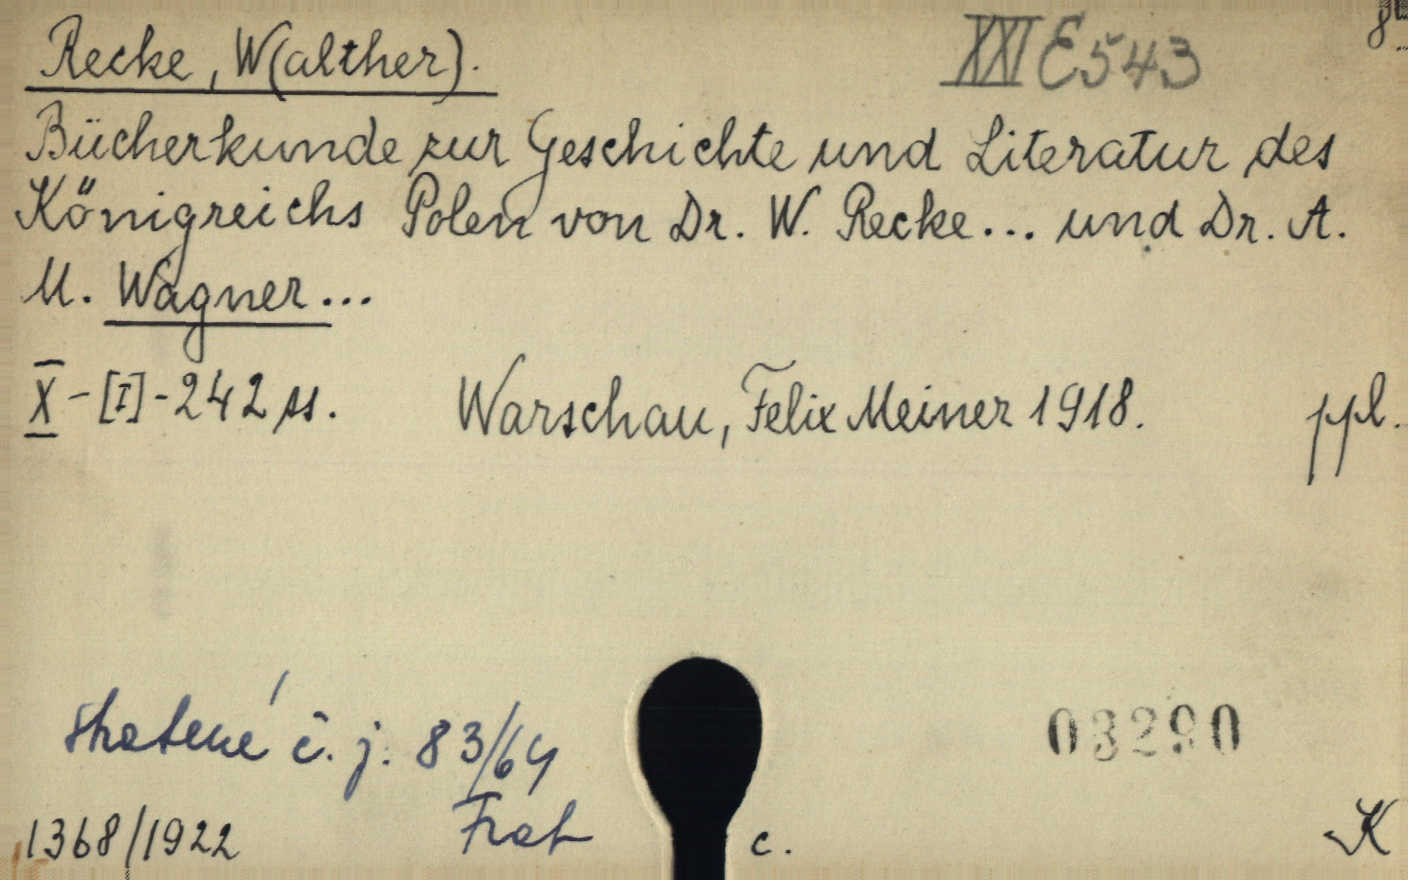 Recke, W(alther). XXI E 543
Bücherkunde zur Geschichte und Literatur des
Königreichs Polen von Dr. W. Recke... und Dr. A.
M. Wagner...
X-[I]-242 ss. Warschau, Felix Meiner 1918. ppl.
ztratené č. j. 83/64
03290
1368/1922 c. K